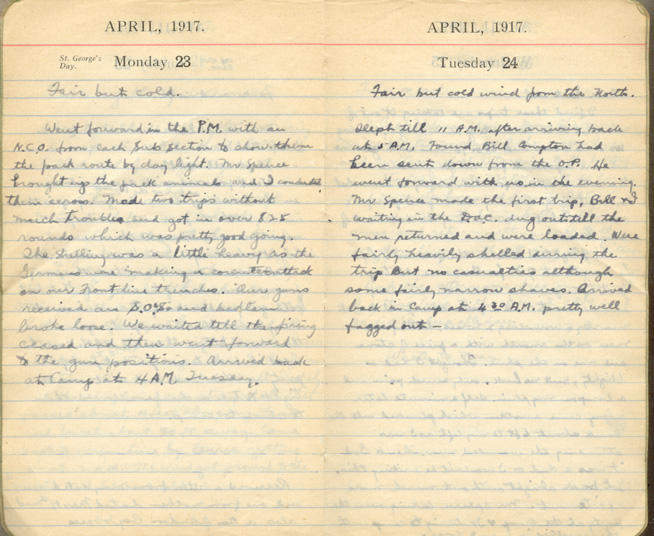 APRIL, 1917.
St. George's
Day.
Monday 23
Fair but cold.
Went forward in the P.M. with an
N.C.O. from each Sub section to show them
the pack route by day light. Mr Spence
brought up the pack animals and I conducted
them across. Made two trips without
much trouble and got in over 825
rounds which was pretty good going.
The shelling was a little heavy as the
Germans were making a counter attack
on our Front line trenches. Our guns
received an S.O.S. and bedlam
broke loose. We waited till the firing
ceased and then went forward
to the gun positions. Arrived back
at Camp at 4 AM. Tuesday.
APRIL, 1917.
Tuesday 24
Fair but cold wind from the North.
Slept till 11 A.M. after arriving back
at 5 AM. Found Bill had
been sent down from the O.P. He
went forward with us in the evening.
Mr Spence made the first trip, Bill & I
waiting in the dug out till the
men returned and were loaded. Were
fairly heavily shelled during the
trip but no casualties although
some fairly narrow shaves. Arrived
back in Camp at 4 30 A.M. pretty well
fagged out —